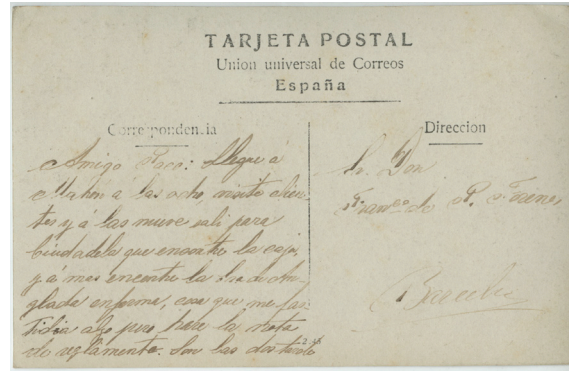 TARJETA POSTAL
Union universal de Correos
España
Correspondencia
Amigo Paco: Llegue á
Mahón á las ocho, visité clien-
tes y á las nueve sali para
Ciudadela que encontre la caja,
y á mas encontre la Sra de An-
glada enferma, cosa que me fas-
tidia algo pero hare la nota
do reglamento. Son las dos tarde
Direccion
Sr. Don
Franco de P.
Barcelona